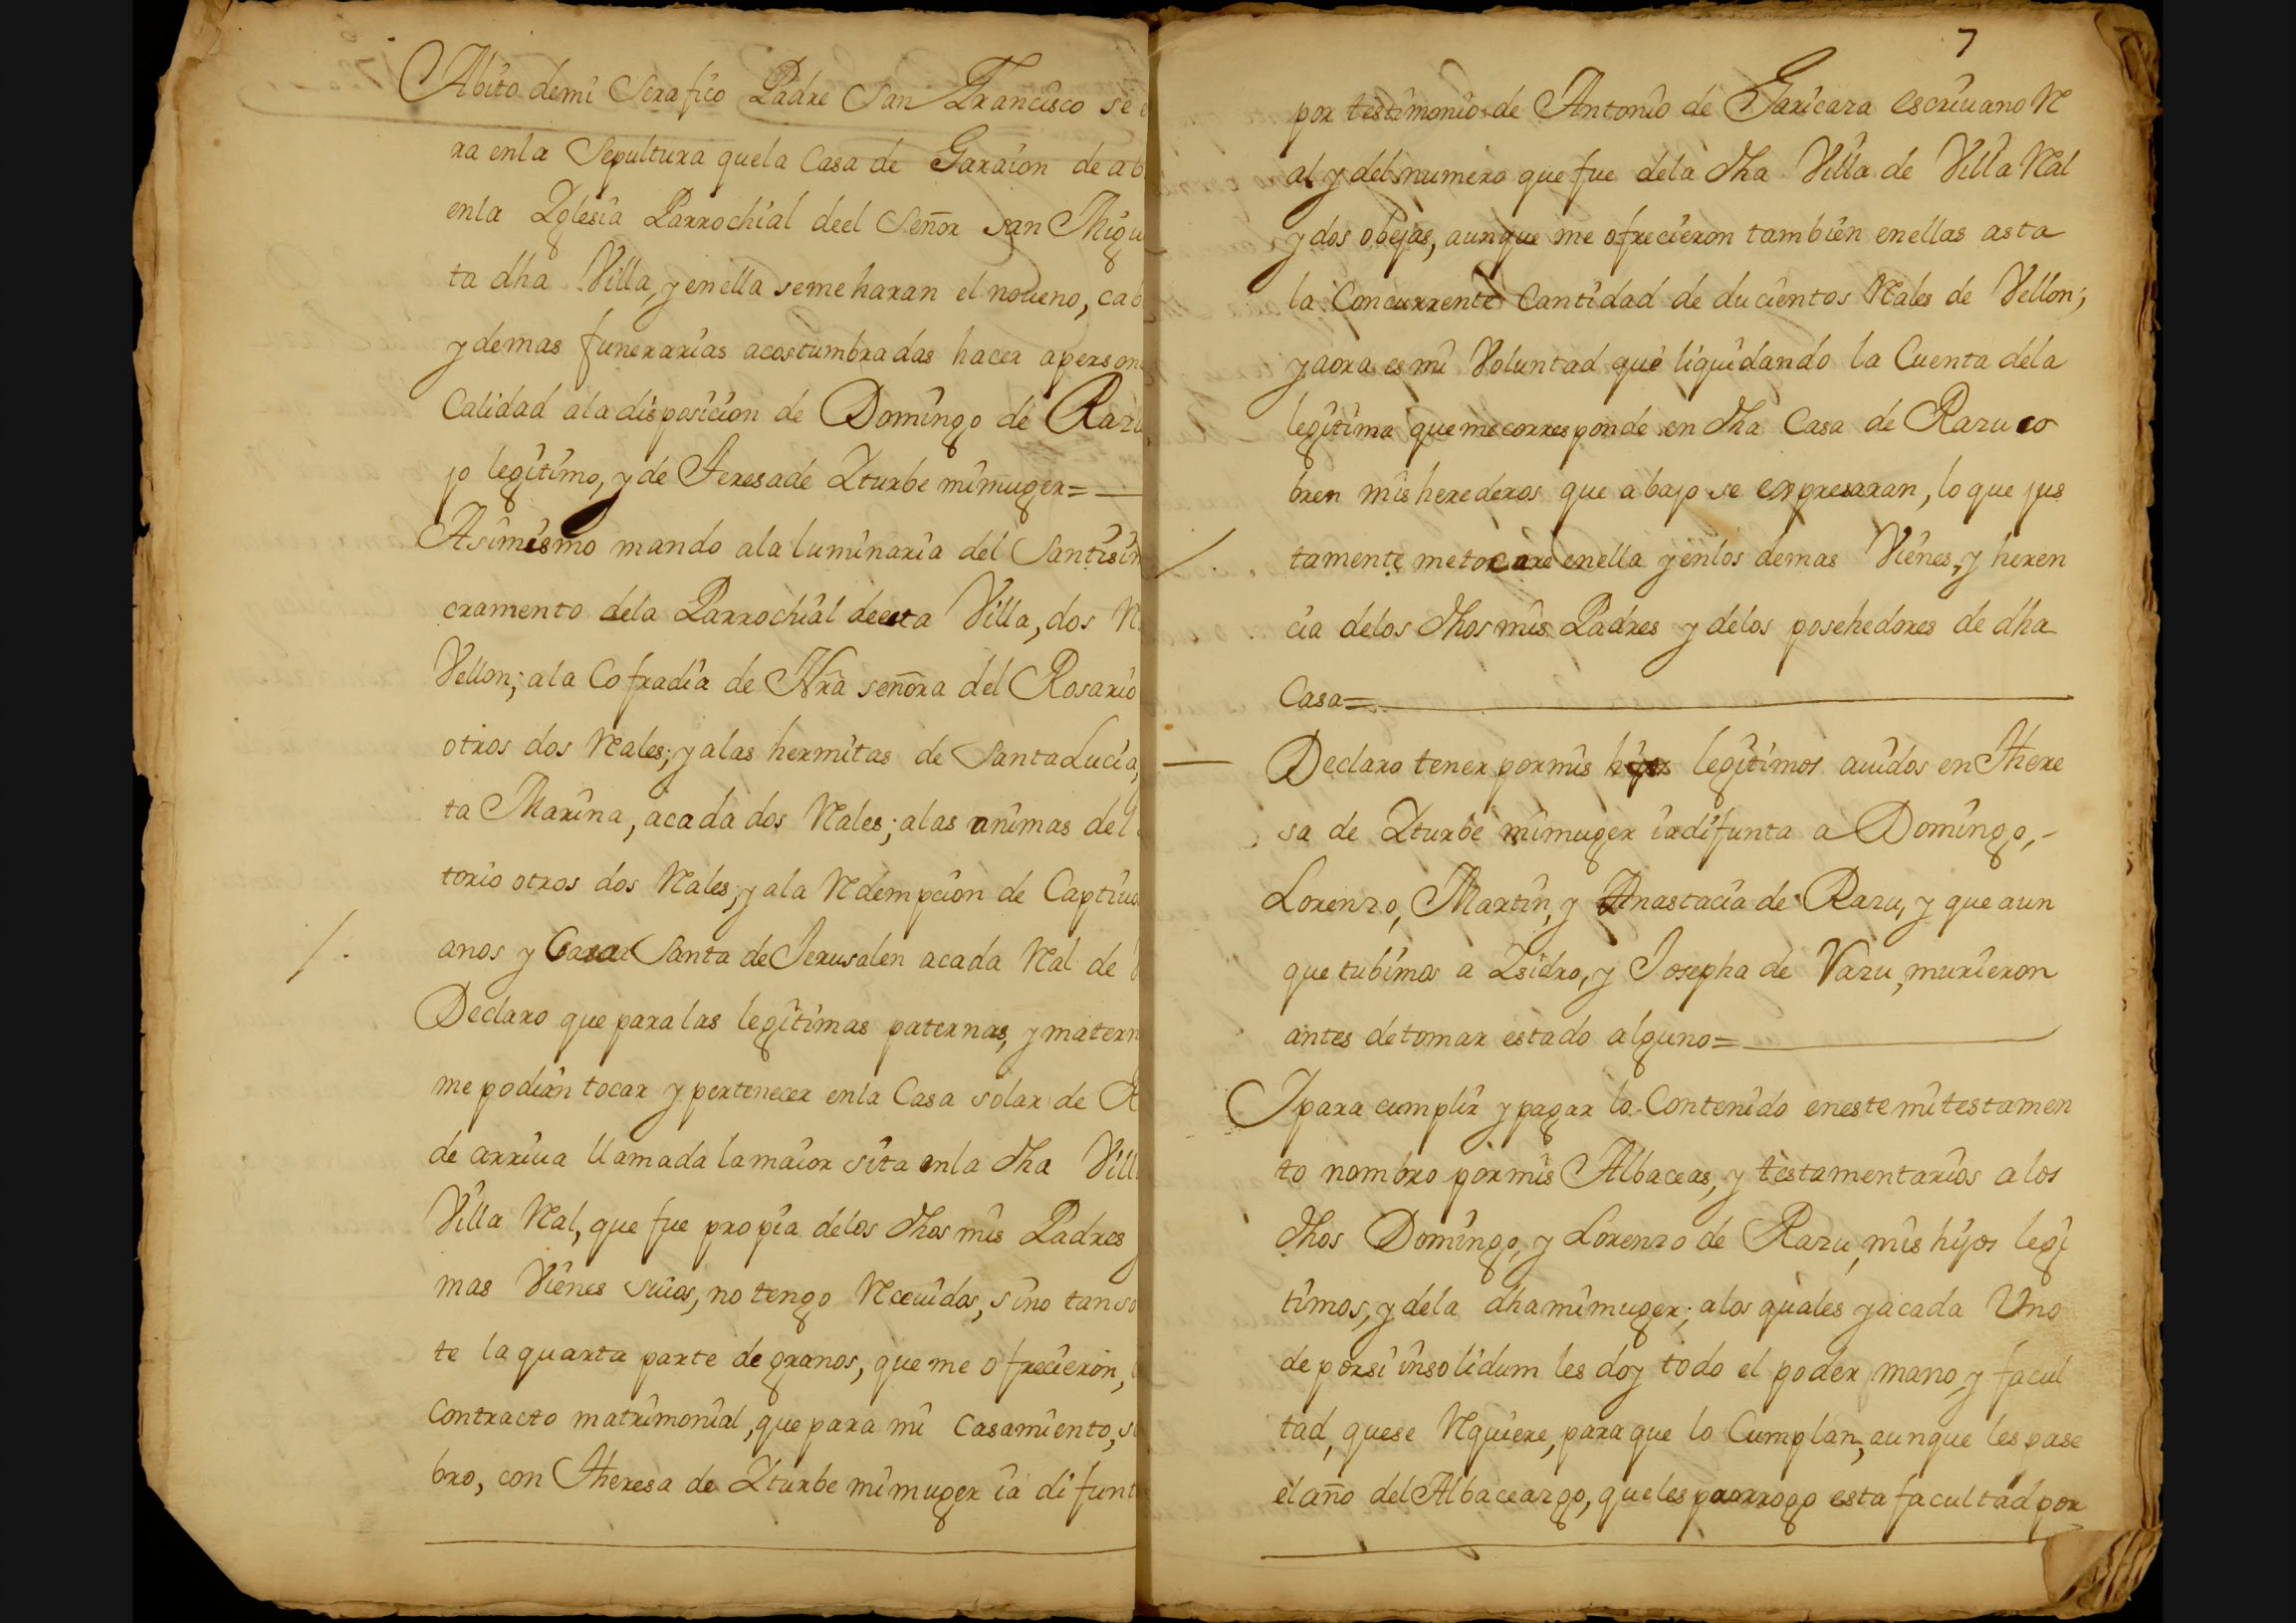 Abito demi Serafico Padre San Francisco se
ra enla Sepultura quela Casa de Garaion de ab
enla Iglesia Parrochial deel Señor san Migu
ta dha Villa, y enella seme haran el noueno, cab
y demas funerarias acostumbradas hacer aperson
Calidad ala disposicion de Domingo de Razu
jo legitimo, y de Teresa de Iturbe mi muger=
Asimismo mando ala luminaria del Santisim
cramento dela Parrochial deesta Villa, dos R
Vellon; ala Cofradia de Nra señora del Rosario
otros dos Rales; y alas hermitas de Santa Lucia,
ta Marina, acada dos Rales; alas animas del
torio otros dos Rales; y ala Rdempcion de Captiuo
anos y Casa Santa de Jerusalen acada Ral de
Declaro que para las legitimas paternas, y matern
me podian tocar y pertenecer enla Casa solar de R
de arriua llamada la maior sita enla dha Vill
Villa Ral, que fue propia delos dhos mis Padres
mas Vienes suios, no tengo Rceuidos, sino tanso
te la quarta parte de granos, que me ofrecieron,
Contracto matrimonial, que para mi Casamiento, s
bro, con Theresa de Iturbe mi muger ia difunt
7
por testimonio de Antonio de Garicara escriuano R
al y del numero que fue dela dha Villa de Villa Ral
y dos obejas, aunque me ofrecieron tambien enellas asta
la Concurrente Cantidad de ducientos Rales de Vellon;
y aora es mi Voluntad que liquidando la Cuenta dela
legitima que me corresponde en dha Casa de Razu co
bren mis herederos que abajo se expresaran, lo que jus
tamente me tocare enella y enlos demas Vienes, y heren
cia delos dhos mis Padres y delos posehedores de dha
Casa=
Declaro tener por mis hijos legitimos auidos en There
sa de Iturbe mi muger ia difunta a Domingo,
Lorenzo, Martin, y Anastacia de Razu, y que aun
que tubimos a Isidro, y Josepha de Razu, murieron
antes de tomar estado alguno=
Y para cumplir y pagar lo Contenido eneste mi testamen
to nombro por mis Albaceas, y testamentarios a los
dhos Domingo, y Lorenzo de Razu, mis hijos legi
timos, y dela dha mi muger; a los quales y acada Uno
de porsi insolidum les doy todo el poder mano, y facul
tad, que se Rquiere, para que lo Cumplan, aunque les pase
el año del Albaceazgo, que les prorrogo esta facultad por